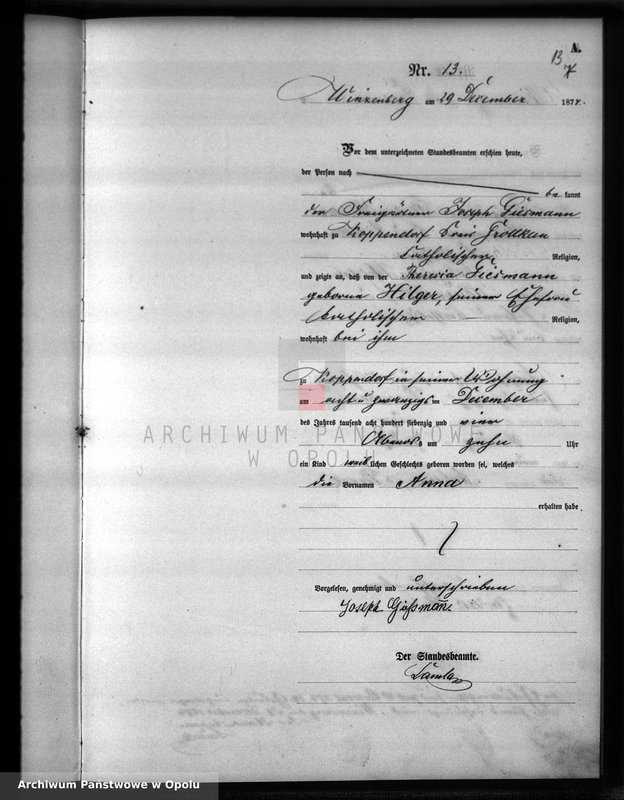 A.
13
Nr. 13.
Winzenberg am 29 December 1874.
Vor dem unterzeichneten Standesbeamten erschien heute,
der Person nach
be kannt
der Freigärtner Joseph Giesmann
wohnhaft zu Koppendorf Kreis Grottkau
katholischer Religion,
und zeigte an, daß von der Theresia Giesmann
geborne Hilger, seiner Ehefrau
katholischer Religion,
wohnhaft bei ihm
zu Koppendorf in seiner Wohnung
am acht u zwanzigsten December
des Jahres tausend acht hundert siebenzig und vier
Abends um zehn Uhr
ein Kind weiblichen Geschlechts geboren worden sei, welches
die Vornamen Anna
erhalten habe
Vorgelesen, genehmigt und unterschrieben
Joseph Gießmañ.
Der Standesbeamte.
ARCHIWUM PAŃSTWOWE
W OPOLU
Archiwum Państwowe w Opolu